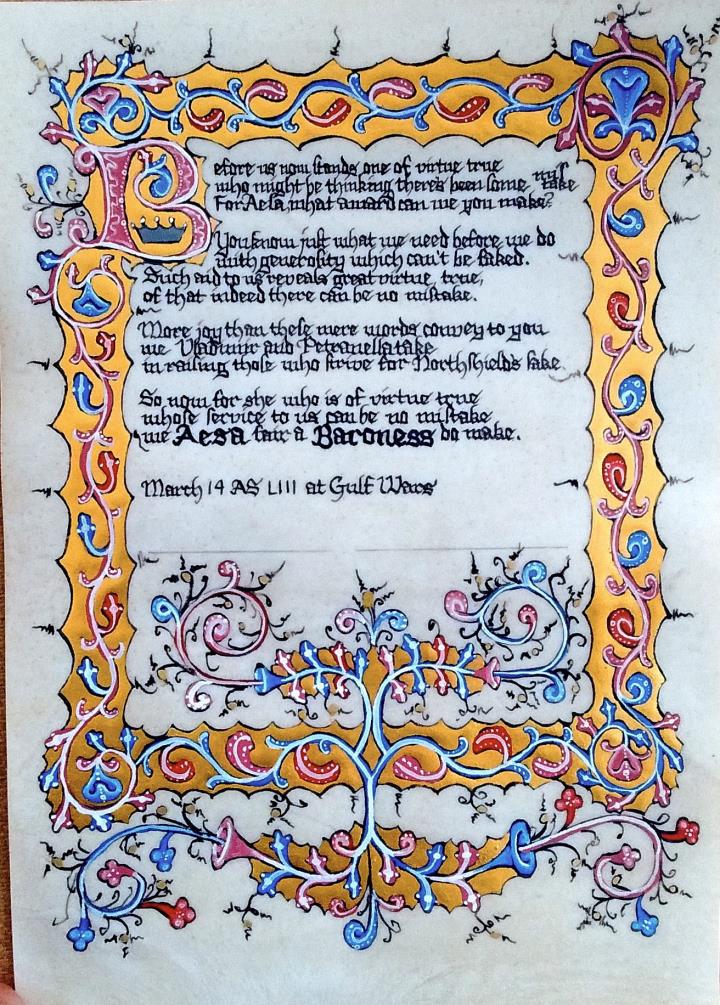 Before us now stands one of virtue true
who might be thinking there's been some mistake
For Aesa, what award can we you make?
You know just what we need before we do
with generosity which can't be faked.
Such aid to us reveals great virtue, true,
of that indeed there can be no mistake.
More joy than theſe mere words convey to you
we Vladimir and Petranella take
in raiſing thoſe who strive for Northshield's ſake.
So now for she who is of virtue true
whose service to us can be no mistake
we Aesa fair a Baroness do make.
March 14 AS LIII at Gulf Wars